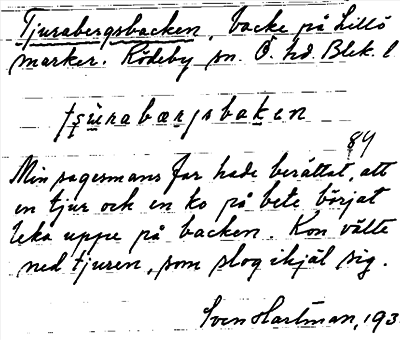 Tjurabergsbacken, backe på Lillö
marker. Rödeby sn. Ö. hd. Blek. l
tʂùrabærjsbaken
84
Min sagesmans far hade berättat, att
en tjur och en ko på bete börjat
leka uppe på backen. Kon välte
ned tjuren, som slog ihjäl sig.
Sven Hartman, 193